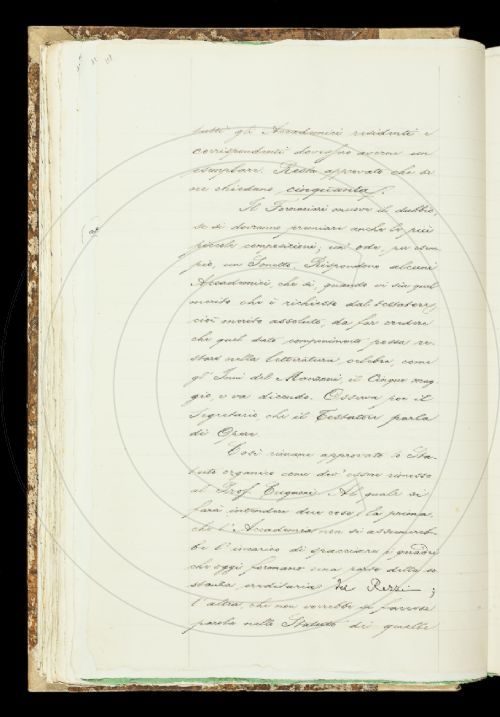 tutti gli Accademici residenti e
corrispondenti dovessero averne un
esemplare. Resta approvato che se
ne chiedano cinquanta.
Il Fornaciari muove il dubbio,
se si dovranno premiare anche le più
piccole composizioni, un'ode, per esem
pio, un Sonetto. Rispondono alcuni
Accademici, che sì, quando vi sia quel
merito che è richiesto dal testatore,
cioè merito assoluto, da far credere
che quel dato componimento possa re
stare nella letteratura, celebre, come
gl'Inni del Manzoni, il Cinque mag
gio, e va dicendo. Osserva poi il
Segretario che il Testatore parla
di Opere.
Così rimane approvato lo Sta-
tuto organico come dev'essere rimesso
al Prof. Cugnoni. Al quale si
farà intendere due cose: la prima,
che l'Accademia non si assumereb-
be l'incarico di spacciare i quadri
che oggi formano una parte della so
stanza ereditaria del Rezzi;
l'altra, che non vorrebbe si facesse
parola nello Statuto di quelle